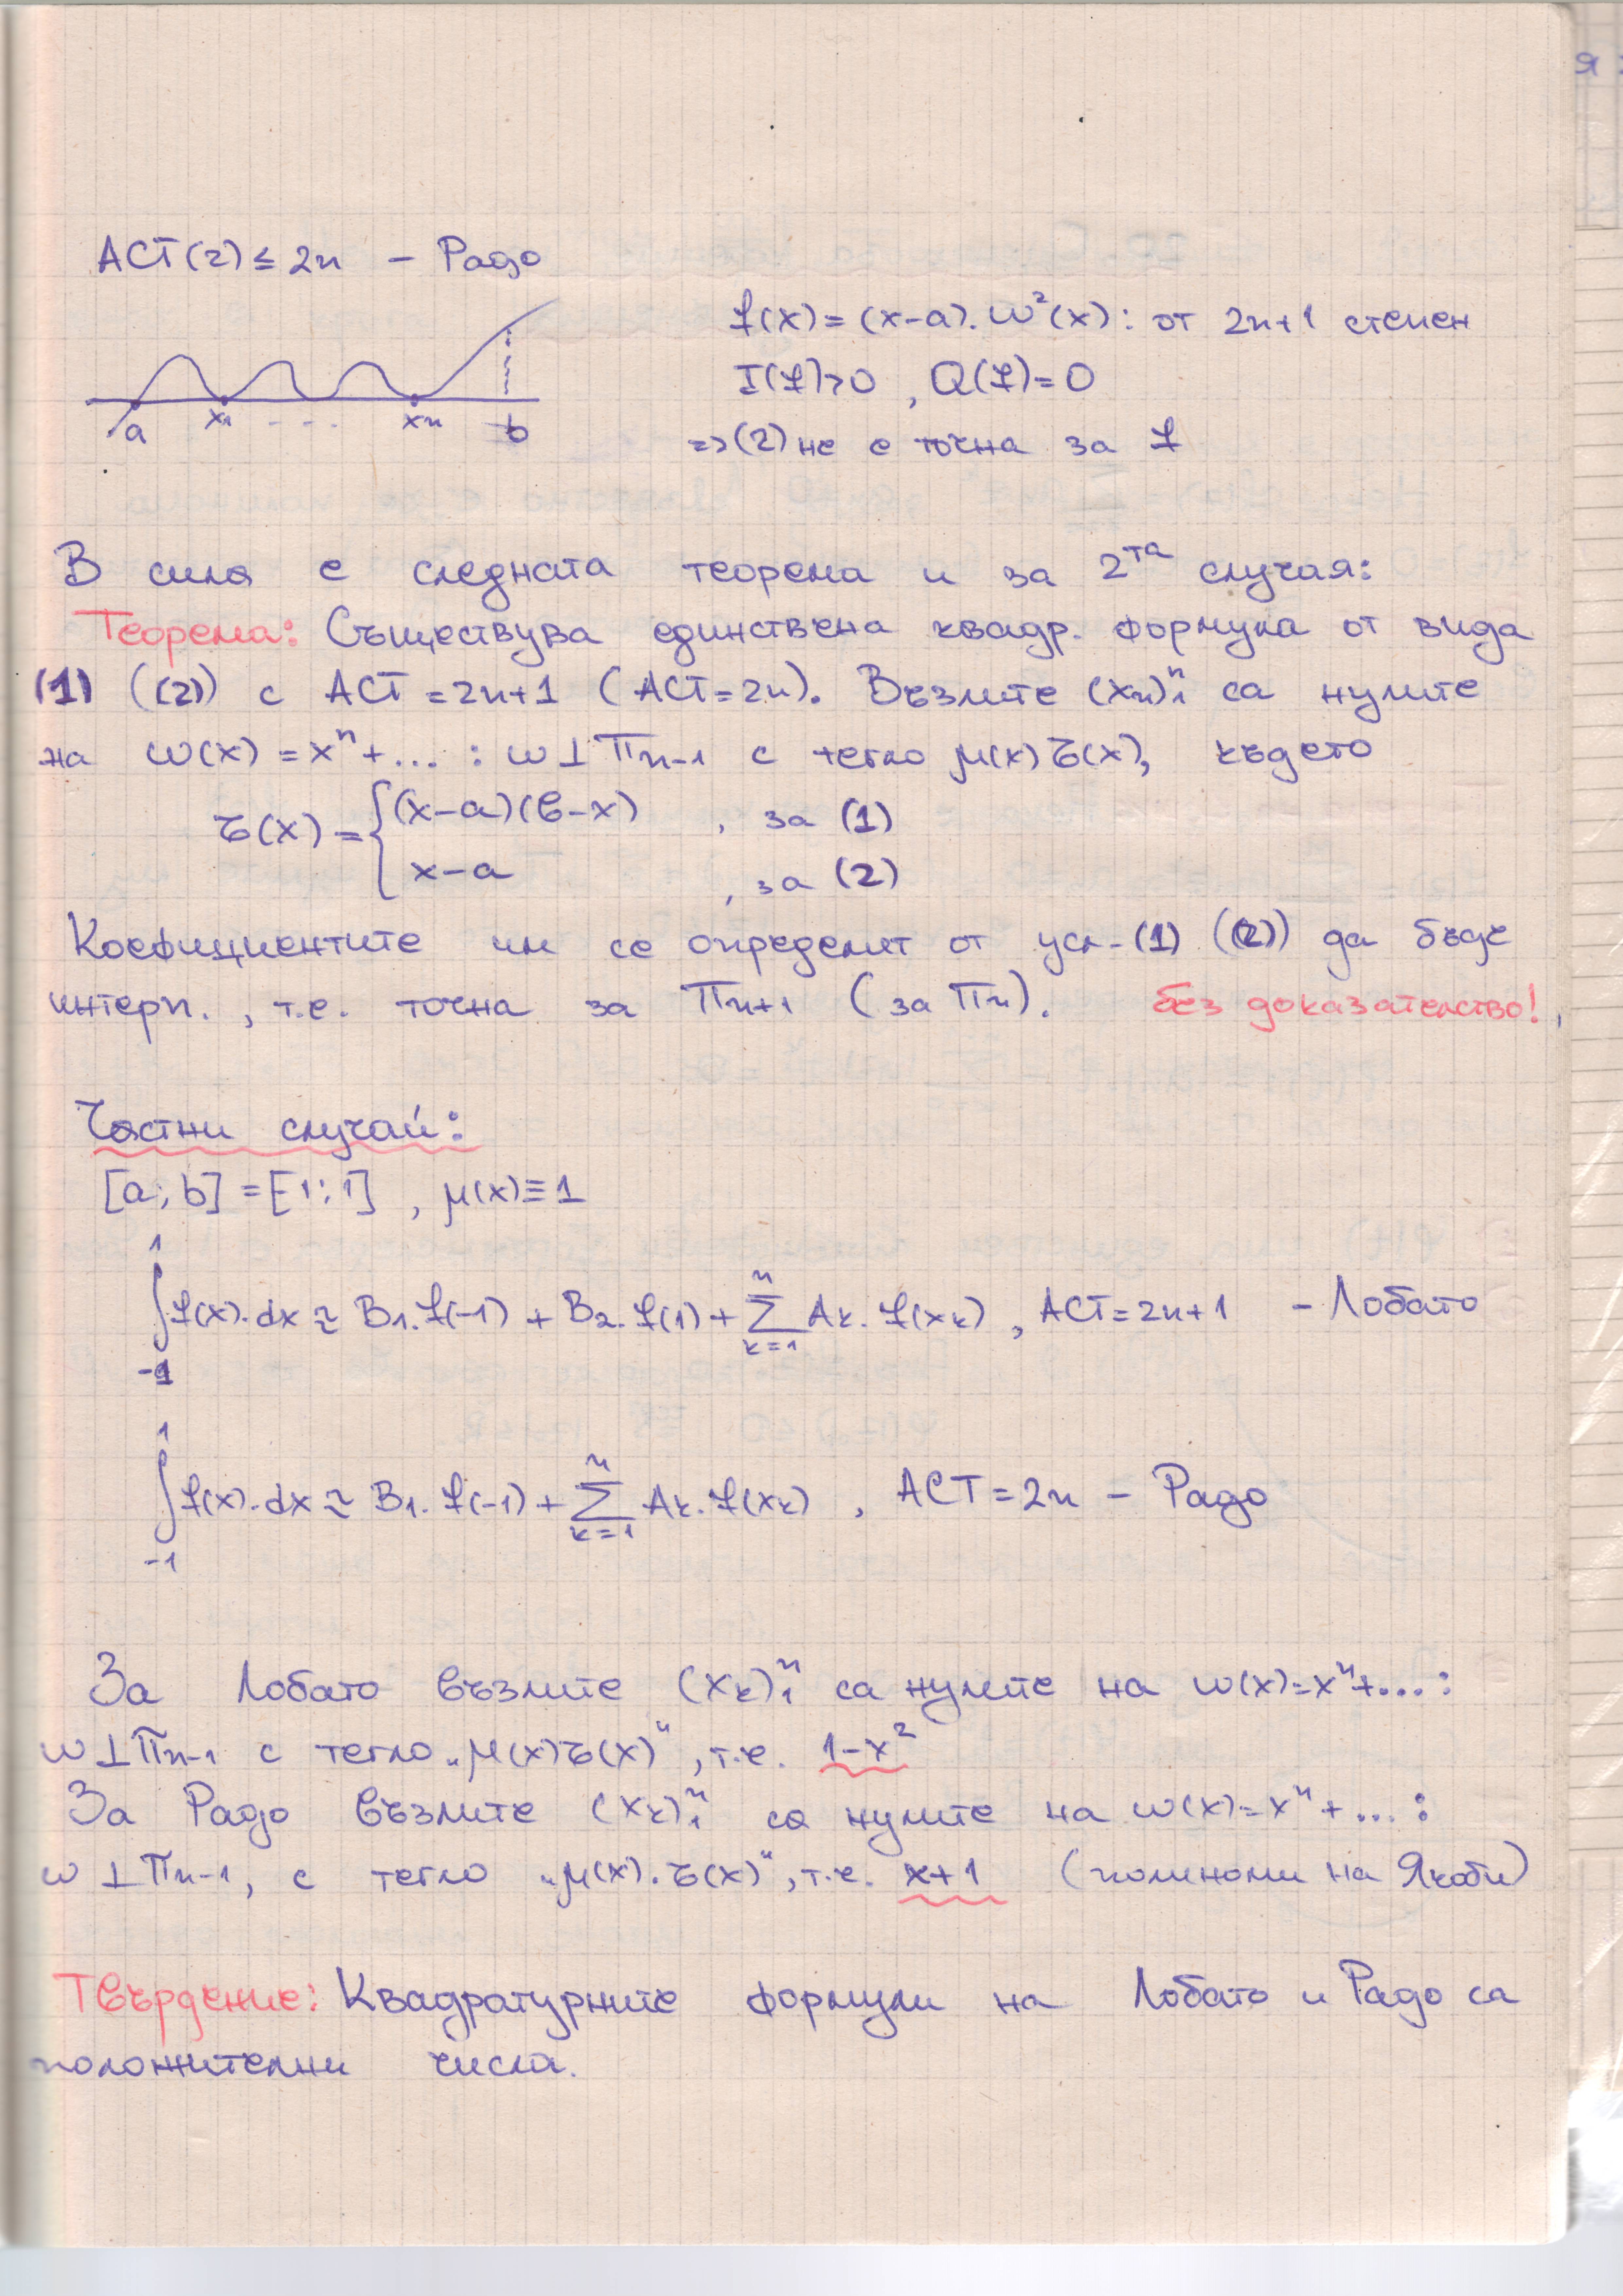 АСТ(2) ≤ 2n – Радо
f(x) = (x-a).ω²(x): от 2n+1 степен
I(f)>0 , Q(f)=0
=> (2) не е точна за f
a x₁ - - - xₙ b
В сила е следната теорема и за 2та случая:
Теорема: Съществува единствена квадр. формула от вида
(1) ((2)) с АСТ = 2n+1 (АСТ=2n). Възлите (xₙ)₁ⁿ са нулите
на ω(x) = xⁿ+... : ω⊥πₙ₋₁ с тегло μ(x)τ(x), където
τ(x) = { (x-a)(b-x) , за (1)
x-a , за (2)
Коефициентите им се определят от усл. (1) ((2)) да бъде
интерп., т.е. точна за πₙ₊₁ (за πₙ). без доказателство!
Частни случай:
[a;b] = [-1;1] , μ(x)≡1
∫₋₁¹ f(x).dx ≈ B₁.f(-1) + B₂.f(1) + ∑ₖ₌₁ⁿ Aₖ.f(xₖ) , АСТ=2n+1 – Лобато
∫₋₁¹ f(x).dx ≈ B₁.f(-1) + ∑ₖ₌₁ⁿ Aₖ.f(xₖ) , АСТ=2n – Радо
За Лобато възлите (xₖ)₁ⁿ са нулите на ω(x)=xⁿ+...:
ω⊥πₙ₋₁ с тегло „μ(x)τ(x)“, т.е. 1-x²
За Радо възлите (xₖ)₁ⁿ са нулите на ω(x)=xⁿ+...:
ω⊥πₙ₋₁, с тегло „μ(x).τ(x)“, т.е. x+1 (полиноми на Якоби)
Твърдение: Квадратурните формули на Лобато и Радо са
положителни числа.